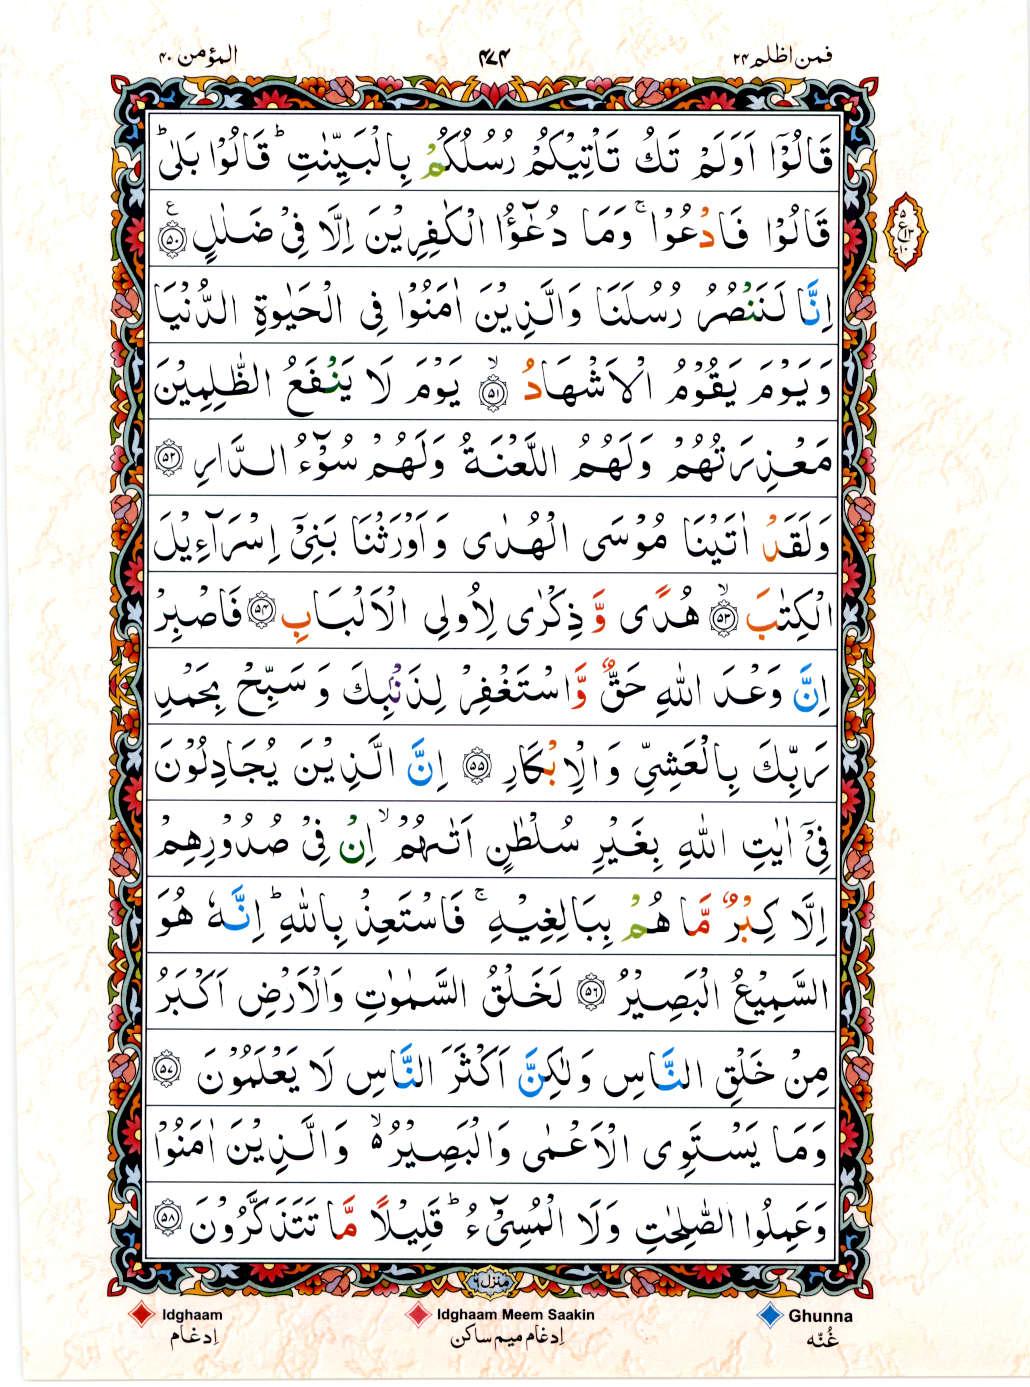 فمن اظلم ۲۴
۴۷۴
المؤمن ۴۰
قَالُوْۤا اَوَلَمْ تَكُ تَاْتِيْكُمْ رُسُلُكُمْ بِالْبَيِّنٰتِ ؕ قَالُوْا بَلٰى ؕ
قَالُوْا فَادْعُوْا ۚ وَمَا دُعٰٓؤُا الْكٰفِرِيْنَ اِلَّا فِيْ ضَلٰلٍ ﴿۵۰﴾ ع
۵
ع ۱۳
۱۰
اِنَّا لَنَنْصُرُ رُسُلَنَا وَالَّذِيْنَ اٰمَنُوْا فِى الْحَيٰوةِ الدُّنْيَا
وَيَوْمَ يَقُوْمُ الْاَشْهَادُ ﴿۵۱﴾ۙ يَوْمَ لَا يَنْفَعُ الظّٰلِمِيْنَ
مَعْذِرَتُهُمْ وَلَهُمُ اللَّعْنَةُ وَلَهُمْ سُوْٓءُ الدَّارِ ﴿۵۲﴾
وَلَقَدْ اٰتَيْنَا مُوْسَى الْهُدٰى وَاَوْرَثْنَا بَنِيْۤ اِسْرَآءِيْلَ
الْكِتٰبَ ﴿۵۳﴾ۙ هُدًى وَّ ذِكْرٰى لِاُولِى الْاَلْبَابِ ﴿۵۴﴾ فَاصْبِرْ
اِنَّ وَعْدَ اللّٰهِ حَقٌّ وَّاسْتَغْفِرْ لِذَنْۢبِكَ وَ سَبِّحْ بِحَمْدِ
رَبِّكَ بِالْعَشِيِّ وَالْاِبْكَارِ ﴿۵۵﴾ اِنَّ الَّذِيْنَ يُجَادِلُوْنَ
فِيْۤ اٰيٰتِ اللّٰهِ بِغَيْرِ سُلْطٰنٍ اَتٰىهُمْ ۙ اِنْ فِيْ صُدُوْرِهِمْ
اِلَّا كِبْرٌ مَّا هُمْ بِبَالِغِيْهِ ۚ فَاسْتَعِذْ بِاللّٰهِ ؕ اِنَّهٗ هُوَ
السَّمِيْعُ الْبَصِيْرُ ﴿۵۶﴾ لَخَلْقُ السَّمٰوٰتِ وَالْاَرْضِ اَكْبَرُ
مِنْ خَلْقِ النَّاسِ وَلٰكِنَّ اَكْثَرَ النَّاسِ لَا يَعْلَمُوْنَ ﴿۵۷﴾
وَمَا يَسْتَوِى الْاَعْمٰى وَالْبَصِيْرُ ۙ۬ وَالَّذِيْنَ اٰمَنُوْا
وَعَمِلُوا الصّٰلِحٰتِ وَلَا الْمُسِيْٓءُ ؕ قَلِيْلًا مَّا تَتَذَكَّرُوْنَ ﴿۵۸﴾
منزل ۶
Idghaam
اِدغام
Idghaam Meem Saakin
اِدغام میم ساکن
Ghunna
غُنّه